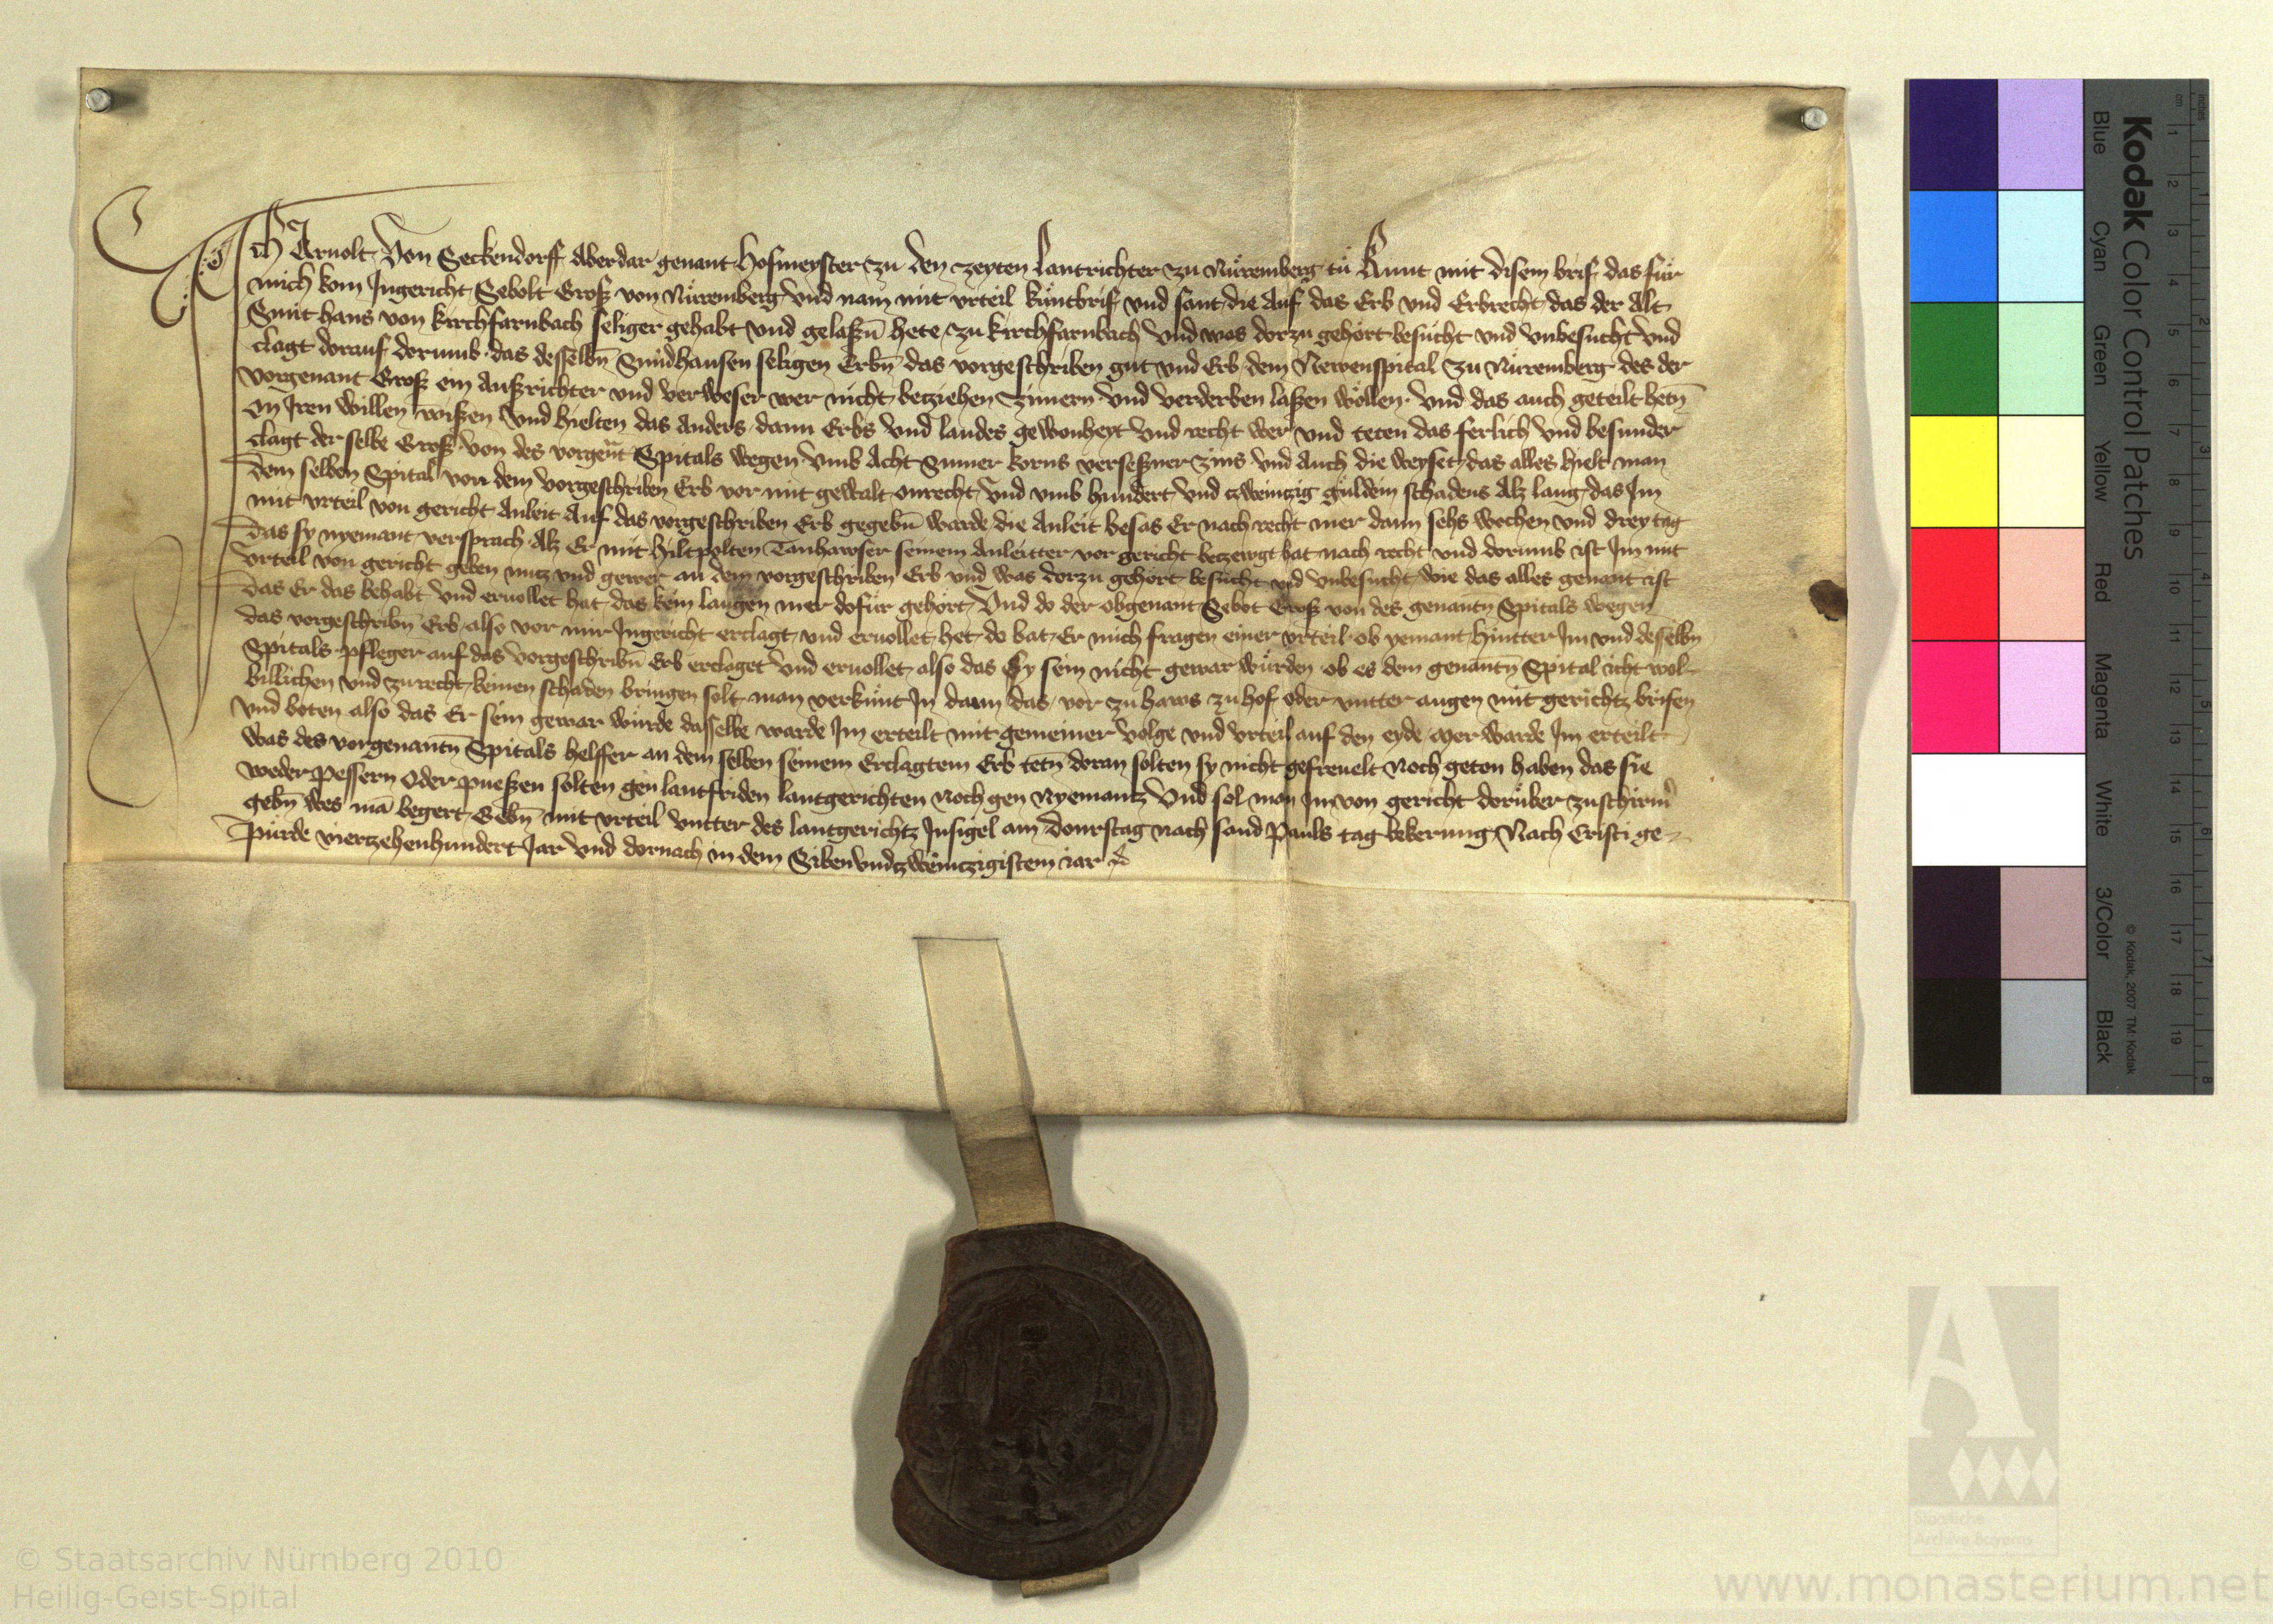 Ich Arnolt von Seckendorff Aberdar genant hofmeyster zu den zeyten lantrichter zu Nüremberg tü kunt mit disem brif das für
mich kom Ingericht Sebolt Groß von Nüremberg vnd nam mit vrteil küntbrif vnd sant die auf das Erb vnd Erbrecht das der Alt
Smit hans von kirchfarnbach seliger gehabt vnd gelaßn̄ hete zu kirchfarnbach vnd was dorzu gehört besücht vnd vnbesucht vnd
clagt dorauf dorumb das desselbn̄ Smidhansen seligen Erbn̄ das vorgeschriben gut vnd Erb dem Newenspital zu Nüremberg des der
vorgenant Groß ein Außrichter vnd verweser wer nicht beziehen zimern vnd verderben laßen wöllen vnd das auch geteilt hetn̄
on Iren willen wißen vnd hielten das anders dann Erbs vnd landes gewonheyt vnd recht wer vnd teten das ferlich vnd besunder
clagt der selbe Groß von des vorgen̄t Spitals wegen vmb Acht Sumer korns verseßner zins vnd auch die weyset das alles hielt man
dem selben Spital von dem vorgeschriben Erb vor mit gewalt onrecht vnd vmb hundert vnd zweinzig guldein schadens Alz lang das Im
mit vrteil von gericht Anleit Auf das vorgeschriben Erb gegebn̄ warde die Anleit besas Er nach recht mer dann sehs wochen vnd drey tag
das sy nyemant versprach Alz Er mit hiltpolten Tanhawser seinem Anleitter vor gericht bezewgt hat nach recht vnd dorumb ist Im mit
vrteil von gericht geben nutz vnd gewer an dem vorgeschriben Erb vnd was dorzu gehört besücht vnd vnbesucht wie das alles genant ist
das Er das behabt vnd eruollet hat das kein laugen mer dofür gehört Vnd do der obgenant Sebot Groß von des genantn̄ Spitals wegen
das vorgeschribn̄ Erb also vor mir Ingericht erclagt vnd eruollet het do bat Er mich fragen einer vrteil ob yemant hintter Im vnd desselbn̄
Spitals pfleger auf das vorgeschribn̄ Erb erclaget vnd eruollet also das Sy sein nicht gewar würden ob es dem genantn̄ Spital icht wol
billichen vnd zurecht keinen schaden bringen solt man verkünt In dann das vor zu haws zu hof oder vntter augen mit gerichtz brifen
vnd boten also das Er sein gewar würde dasselbe warde Im erteilt mit gemeiner volge vnd vrteil auf den eyde mer warde Im erteilt
was des vorgenantn̄ Spitals helffer an dem selben seinem Erclagtem Erb tetn̄ doran solten sy nicht gefreuelt noch geton haben das sie
weder pessern oder pueßen solten gen lantfriden lantgerichten noch gen Nyemantz Vnd sol man Im von gericht dorüber zuschirm̄
gebn̄ wes mā begert Gebn̄ mit vrteil vntter des lantgerichtz Insigel am donrstag nach sand Pauls tag bekerung Nach Cristi ge-
pürde viertzehenhundert Jar vnd dornach in dem Sibenvndzweintzigistem iar
Kodak Color Control Patches
© Kodak, 2007 TM: Kodak
Blue Cyan Green Yellow Red Magenta White 3/Color Black
cm 1 2 3 4 5 6 7 8 9 10 11 12 13 14 15 16 17 18 19
inches 1 2 3 4 5 6 7 8
Staatliche
Archive Bayerns
© Staatsarchiv Nürnberg 2010
Heilig-Geist-Spital
www.monasterium.net